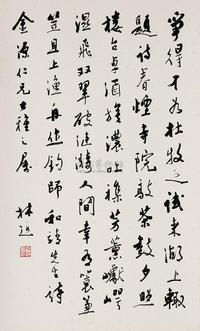 爭得才如杜牧之試来湖上輒
題詩春煙寺院敲茶鼓夕照
樓台卓酒旗濃吐襍芳薰巘崿
濕飛双翠破漣漪人間幸有蓑兼
笠且上漁舟作釣師 和靖先生詩
金源仁兄大雅之屬 林